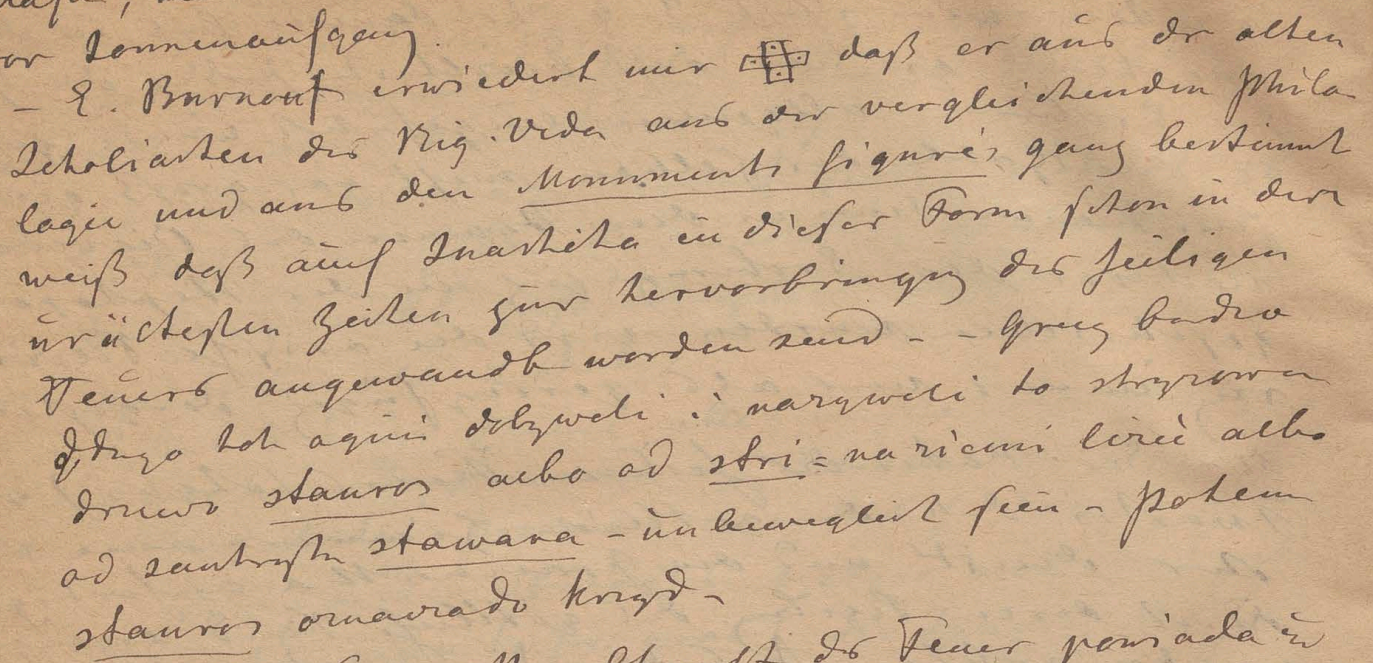 or Sonnenaufgang
– E. Burnouf erwiedert mir 卐 daß er aus dr alten
Scholiasten des Rig. Veda aus der vergleichenden Philo
logie und aus den Monuments figurés ganz bestimmt
weiß daß auf Suastika in dieser Form schon in den
urältesten Zeiten zur hervorbringung des heiligen
Feuers angewandt worden send - - Grecy bardzo
długo toh ogień dobyweli i nazyweli to stryzowane
druwo stauros aebo od stri = na ziemi lizić albo
od sankryta stawara - unbeweglich sein - Potem
stauros oznaczado krzyd -
des Feuer powiada